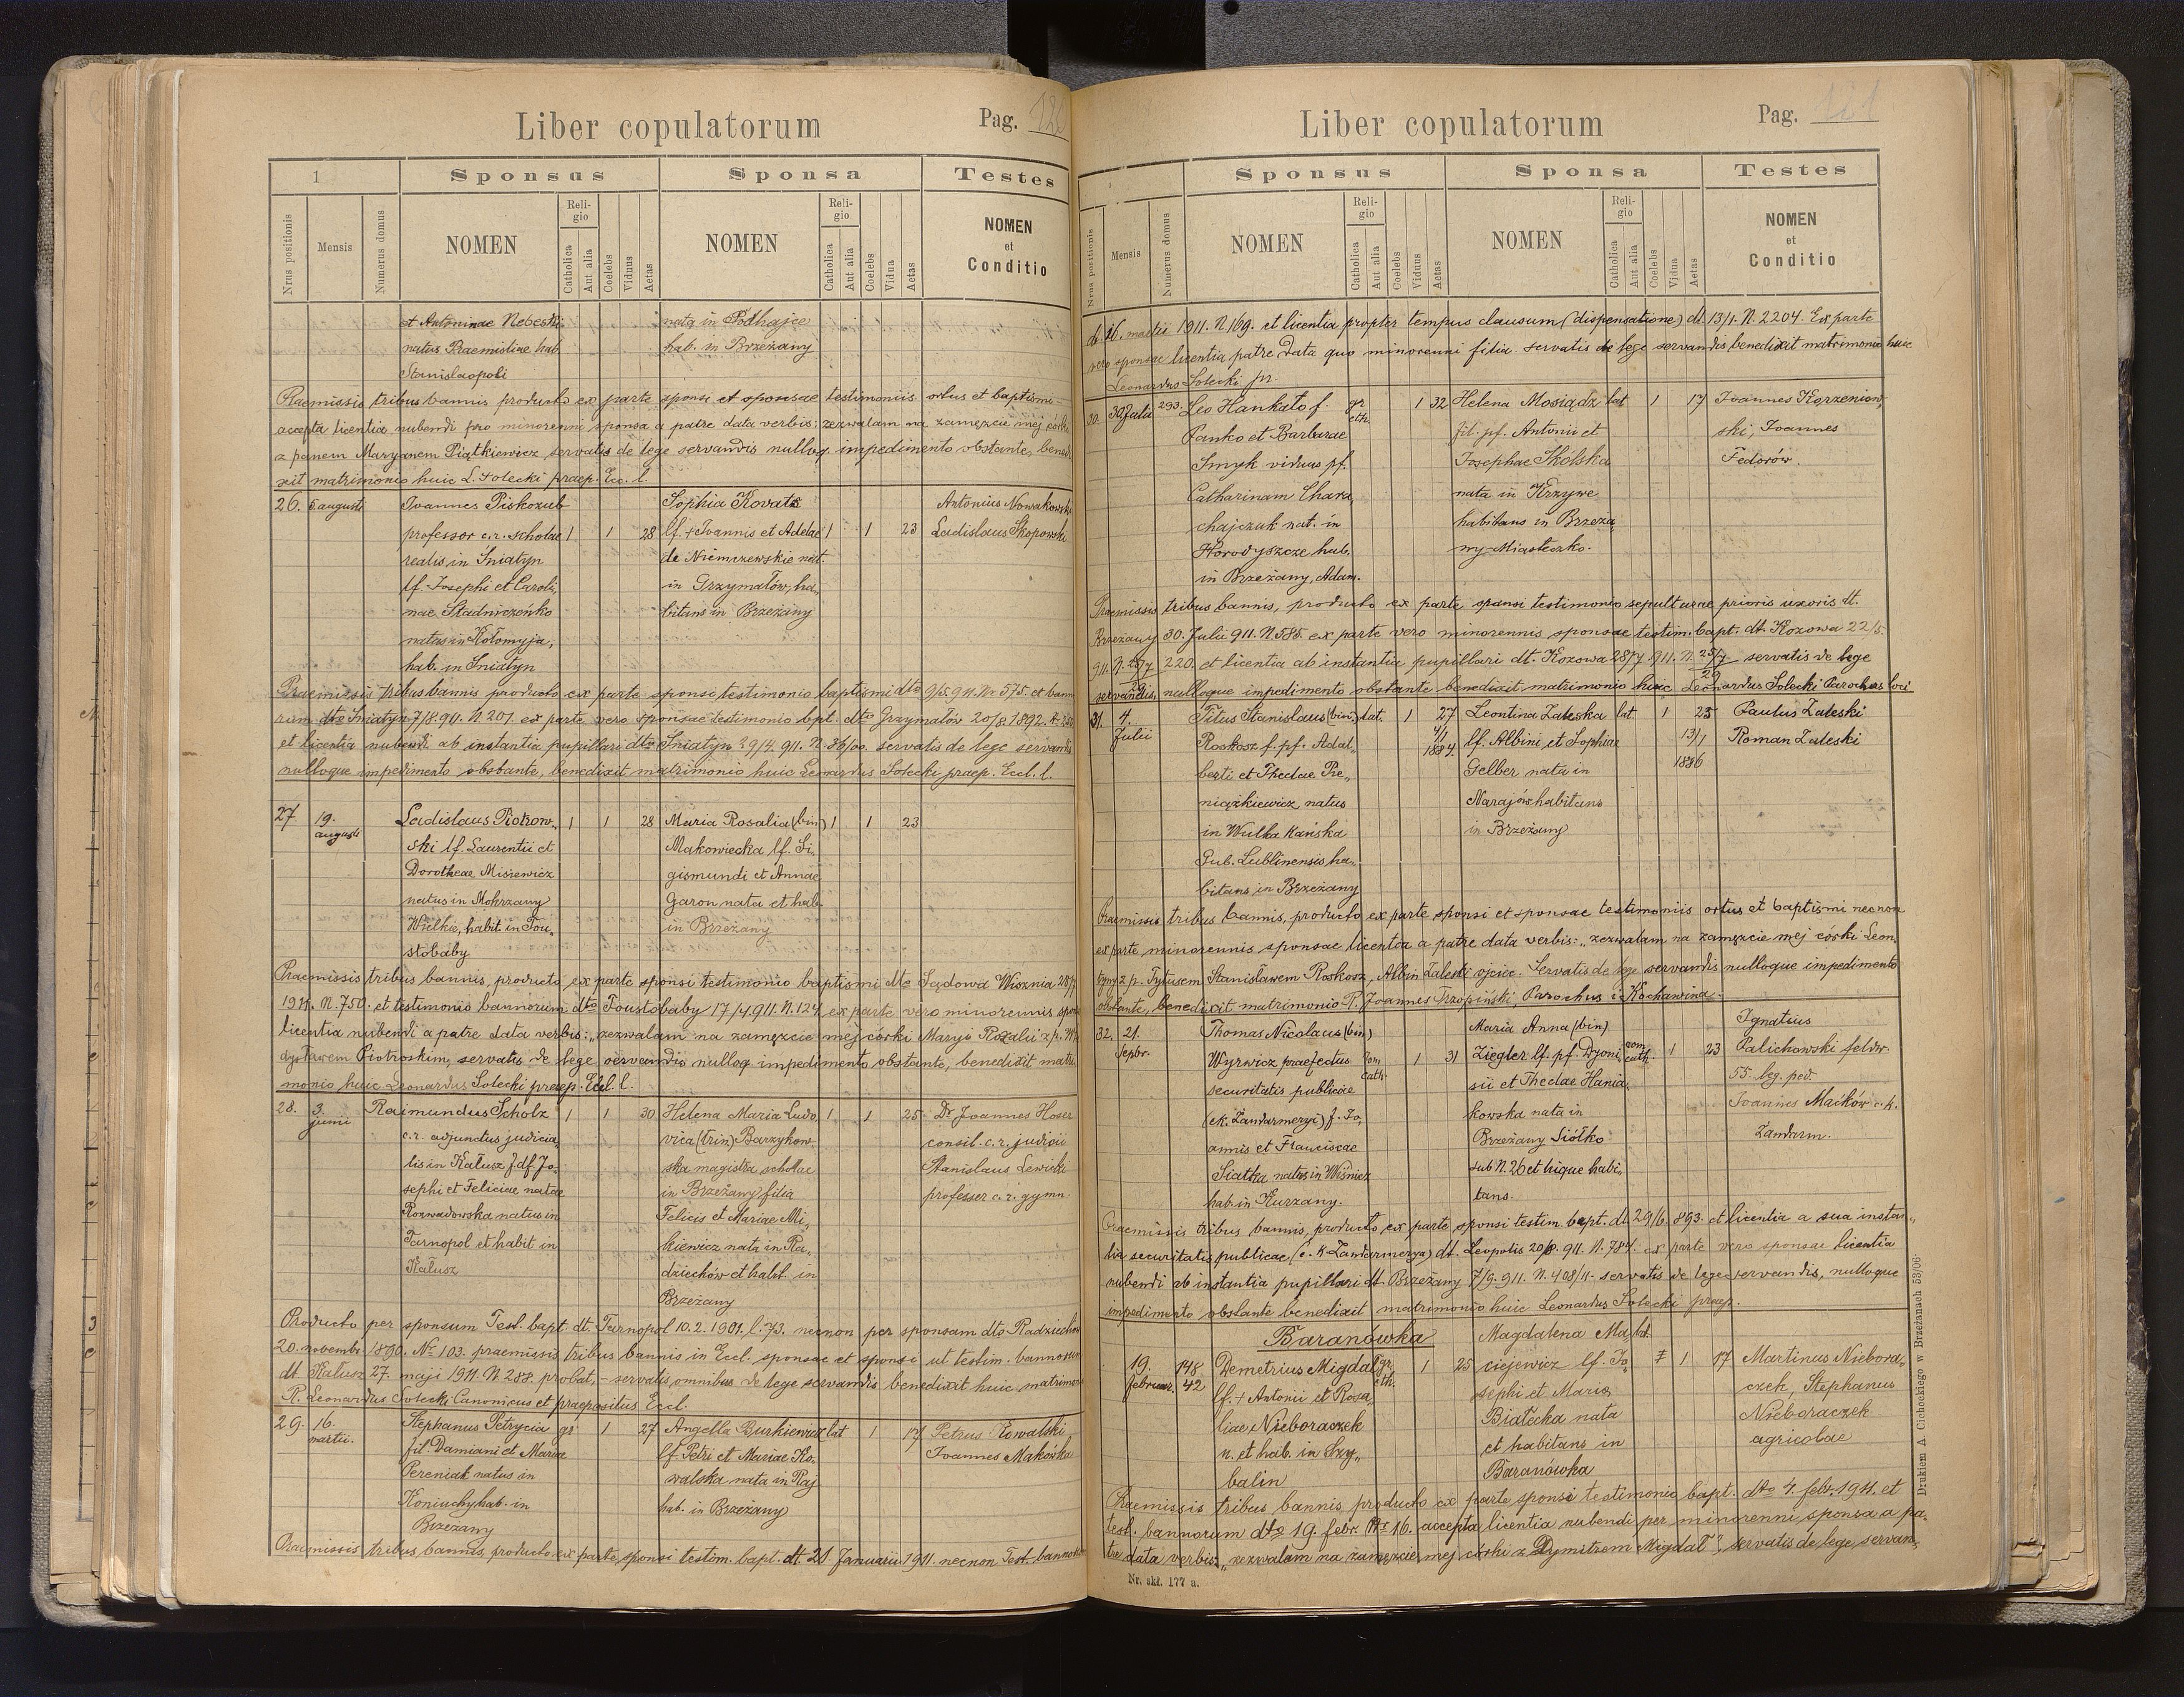 Liber copulatorum
Pag. 120
1
Sponsus
Sponsa
Testes
Nrus positionis
Mensis
Numerus domus
NOMEN
Religio
Catholica
Aut alia
Coelebs
Viduus
Aetas
NOMEN
Religio
Catholica
Aut alia
Coelebs
Vidua
Aetas
NOMEN
et
Conditio
et Antoninae Nebeski
natus Praemisliae hab.
Stanislaopoli
nata in Podhajce
hab. in Brzeżany
Praemissis tribus bannis producto ex parte sponsi et sponsae testimoniis ortus et baptismi
accepta licentia nubendi pro minorenni sponsa a patre data verbis: zezwalam na zamęzcie mej córki
z panem Maryanem Piątkiewicz servatis de lege servandis nulloq. impedimento obstante, bened.
xit matrimonio huic L. Solecki praep. Ecc. l.
26. 5. augusti
Joannes Piskozub
professor c.r. scholae 1 1 28
realis in Sniatyn
lf. Josephi et Caroli„
nae Stadniczeńko
natus in Kołomyja,
hab. in Sniatyn
Sophia Kovats
lf. + Joannis et Adelae 1 1 23
de Niemczewskie nat.
in Grzymałów, ha„
bitans in Brzeżany
Antonius Nowakowski
Ladislaus Skopowski
Praemissis tribus bannis producto ex parte sponsi testimonio baptismi dto 9/5. 911. Nr. 575. et banno
rum dto Sniatyn 7/8. 911. N. 201. ex parte vero sponsae testimonio bpt. dto Grzymałów 20/8. 1892.
et licentia nubendi ab instantia pupillari dto Sniatyn 29/4. 911. N. 36/00. servatis de lege servandis
nulloque impedimento obstante, benedixit matrimonio huic Leonardus Solecki praep. Eccl. l.
27. 19. augusti
Ladislaus Piotrow„ 1 1 28
ski lf. Laurentii et
Dorotheae Misiewicz
natus in Mohrzany
Wielkie, habit. in Tou„
stobaby
Maria Rosalia (bin.) 1 1 23
Makowiecka lf. Si„
gismundi et Annae
Garon nata et hab.
in Brzeżany
Praemissis tribus bannis, producto ex parte sponsi testimonio baptismi dto Sądowa Wisznia 28/7
1911. N. 750. et testimonio bannorum dto Toustobaby 17/4. 911. N. 124. ex parte vero minorennis spon
licentia nubendi a patre data verbis: „zezwalam na zamęzcie mej córki Maryi Rozalii z p. Wła
dysławem Piotroskim, servatis de lege servandis nulloq. impedimento obstante, benedixit matri
monio huic Leonardus Solecki praep. Eccl. l.
28. 3. junii
Raimundus Scholz 1 1 30
c.r. adjunctus judicia„
lis in Kałusz f. df. Jo„
sephi et Feliciae natae
Rozwadowska natus in
Tarnopol et habit in
Kałusz
Helena Maria Ludo„ 1 1 25
vica (trin.) Barzykow
ska magistra scholae
in Brzeżany filia
Felicis et Mariae Mi„
kiewicz nata in Ra„
dziechów et habit. in
Brzeżany
Dr Joannes Hoser
consil. c.r. judicii
Stanislaus Lewicki
professer c.r. gymn.
Producto per sponsum Test. bapt. dt. Tarnopol 10.2. 1901. l. 73. necnon per sponsam dto Radziechów
20. novembr. 1890. No 103. praemissis tribus bannis in Eccl. sponsae et sponsi ut testim. bannorum
dt. Kałusz 27. maji 1911. N. 288. probat, – servatis omnibus de lege servandis benedixit huic matrimon
R. Leonardus Solecki Canonicus et praepositus Eccl.
29. 16. martii.
Stephanus Petrycia gr. 1 27
fil. Damiani et Mariae
Pereniak natus in
Koniuchy hab. in
Brzeżany
Angella Burkiewicz lat 1 17
lf. Petri et Mariae Ko„
walska nata in Raj
hab. in Brzeżany
Petrus Kowalski,
Joannes Makówka
Praemissis tribus bannis, producto ex parte sponsi testim. bapt. dt. 21. Januarii 1911. necnon Test. bannor
Liber copulatorum
Pag. 121
Sponsus
Sponsa
Testes
Nrus positionis
Mensis
Numerus domus
NOMEN
Religio
Catholica
Aut alia
Coelebs
Viduus
Aetas
NOMEN
Religio
Catholica
Aut alia
Coelebs
Vidua
Aetas
NOMEN
et
Conditio
dt. 16. martii 1911. N. 169. et licentia propter tempus clausum (dispensatione) dt. 13/1. N. 2204. Ex parte
vero sponsae licentia patre data quo minorenni filia. servatis de lege servandis, benedixit matrimonio huic
Leonardus Solecki pr.
30. 30 Julii 293.
Leo Hankato f. gr. cth. 1 32
Panko et Barbarae
Smyk viduus pf.
Catharinam Chara„
chajczuk nat. in
Horodyszcze hab.
in Brzeżany, Adam.
Helena Mosiądz lat 1 17
fil. pf. Antonii et
Josephae Skolska
nata in Krzywe
habitans in Brzeża„
ny-Miasteczko.
Joannes Korzeniow„
ski, Joannes
Fedorów.
Praemissis tribus bannis, producto ex parte sponsi testimonio sepulturae prioris uxoris dt.
Brzeżany 30. Julii 911. N 585. ex parte vero minorennis sponsae testim. bapt. dt. Kozowa 22/5.
911. N. 220. et licentia ab instantia pupillari dt. Kozowa 28/7. 911. N. 25/7 servatis de lege
servandis, nulloque impedimento obstante benedixit matrimonio huic Leonardus Solecki Parochus loci
31. 4. Julii
Titus Stanislaus (bin.) lat. 1 27
4/1 1884.
Roskosz f. pf. Adal„
berti et Theclae Pie„
niążkiewicz, natus
in Wulka Kańska
Gub. Lublinensis ha„
bitans in Brzeżany
Leontina Zaleska lat. 1 25
13/1 1886
lf. Albini et Sophiae
Gelber nata in
Narajów habitans
in Brzeżany
Paulus Zaleski
Roman Zaleski
Praemissis tribus bannis, producto ex parte sponsi et sponsae testimoniis ortus et baptismi necnon
ex parte minorennis sponsae licentia a patre data verbis: „zezwalam na zamęzcie mej córki Leon„
tyny z p. Tytusem Stanisławem Roskosz, Albin Zaleski ojciec. Servatis de lege servandis nulloque impedimento
obstante, benedixit matrimonio P. Joannes Trzopiński Parochus i Kochawina.-
32. 21. Sepbr.
Thomas Nicolaus (bin.)
Wyrwicz praefectus rom. cath. 1 31
securitatis publicae
(c.k. Żandarmeryi) f. Jo„
annis et Franciscae
Siatka natus in Wiśnicz
hab. in Kurzany.
Maria Anna (bin)
Ziegler lf. pf. Dyoni„ rom. cath. 1 23
sii et Theclae Hania„
kowska nata in
Brzeżany Siółko
sub N. 26 et hique habi„
tans.
Ignatius
Palichowski feldw.
55. leg. ped.
Joannes Maików c.k.
Żandarm.
Praemissis tribus bannis, producto ex parte sponsi testim. bapt. dt. 29/6. 893. et licentia a sua instan„
tia securitatis publicae (c.k. Żandarmerya) dt. Leopolis 20/8. 911. N. 784. ex parte vero sponsae licentia
nubendi ab instantia pupillari dt. Brzeżany 7/9. 911. N. 408/11 – servatis de lege servandis, nulloque
impedimento obstante benedixit matrimonio huic Leonardus Solecki praep.
Baranówka
19. februar. 148 42
Demetrius Migdał gr. cth. 1 25
lf. + Antonii et Rosa„
liae Nieboraczek
n. et hab. in Szy„
balin
Magdalena Ma„ lat.
ciejewicz lf. Jo„ 1 17
sephi et Maria
Białecka nata
et habitans in
Baranówka
Martinus Niebora„
czek, Stephanus
Nieboraczek
agricolae
Praemissis tribus bannis, producto ex parte sponsi testimonio bapt. dto 4. febr. 1911. et
test. bannorum dto 19. febr. No 16. accepta licentia nubendi per minorenni sponsa a pa„
tre data verbis: „zezwalam na zamęzcie mej córki z Dymitrem Migdał", servatis de lege servan„
Nr. skł. 177 a.
Drukiem A. Cichockiego w Brzeżanach 53/06